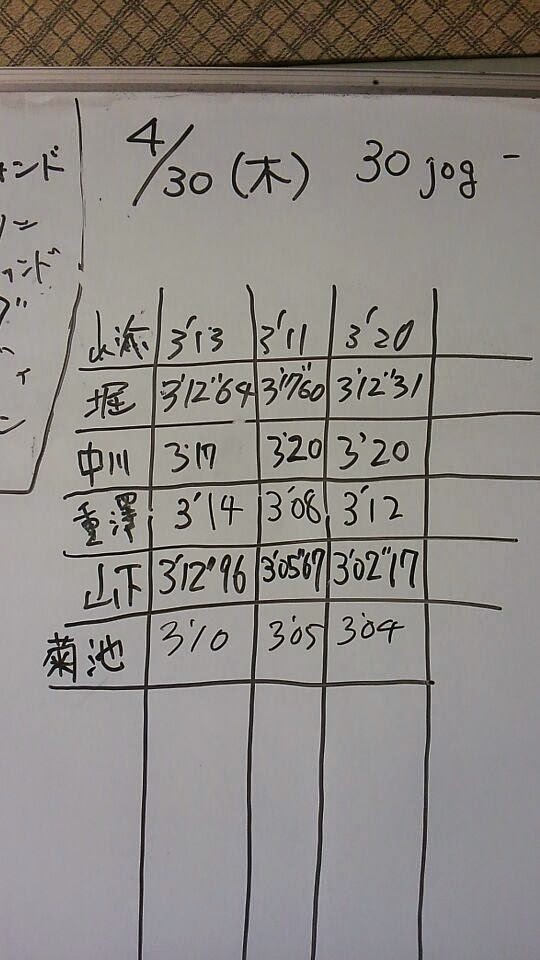 4/30(木) 30 jog -
ンド
山添 3'13 3'11 3'20
堀 3'12"64 3'7"60 3'12"31
中川 3'17 3'20 3'20
重澤 3'14 3'08 3'12
山下 3'12"96 3'05"67 3'02"17
菊池 3'10 3'05 3'04